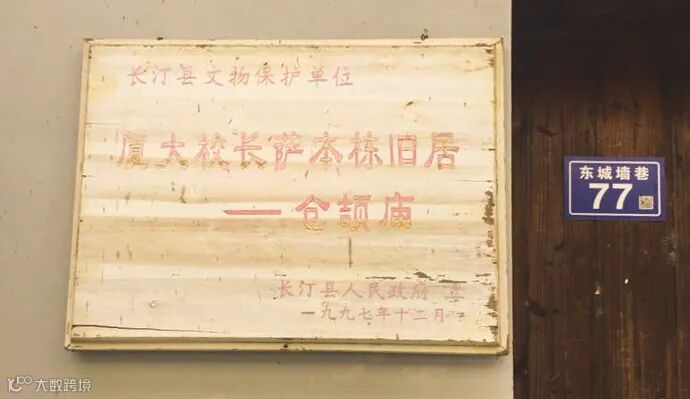 长汀县文物保护单位
厦大校长萨本栋旧居
—仓颉庙
长汀县人民政府 立
一九九七年十二月
东城墙巷
77
大数跨境